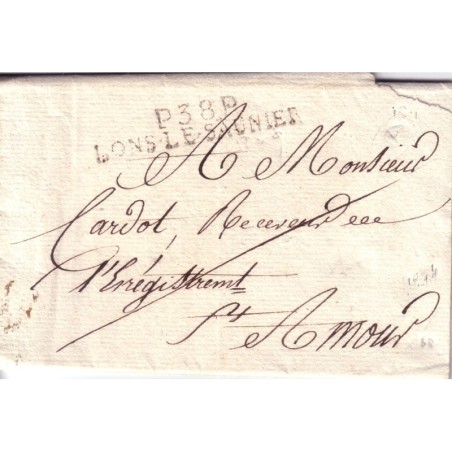 P38P
LONS-LE-SAUNIER
A Monsieur
Cardot, Receveur de
l'Enrégistremt
St Amour